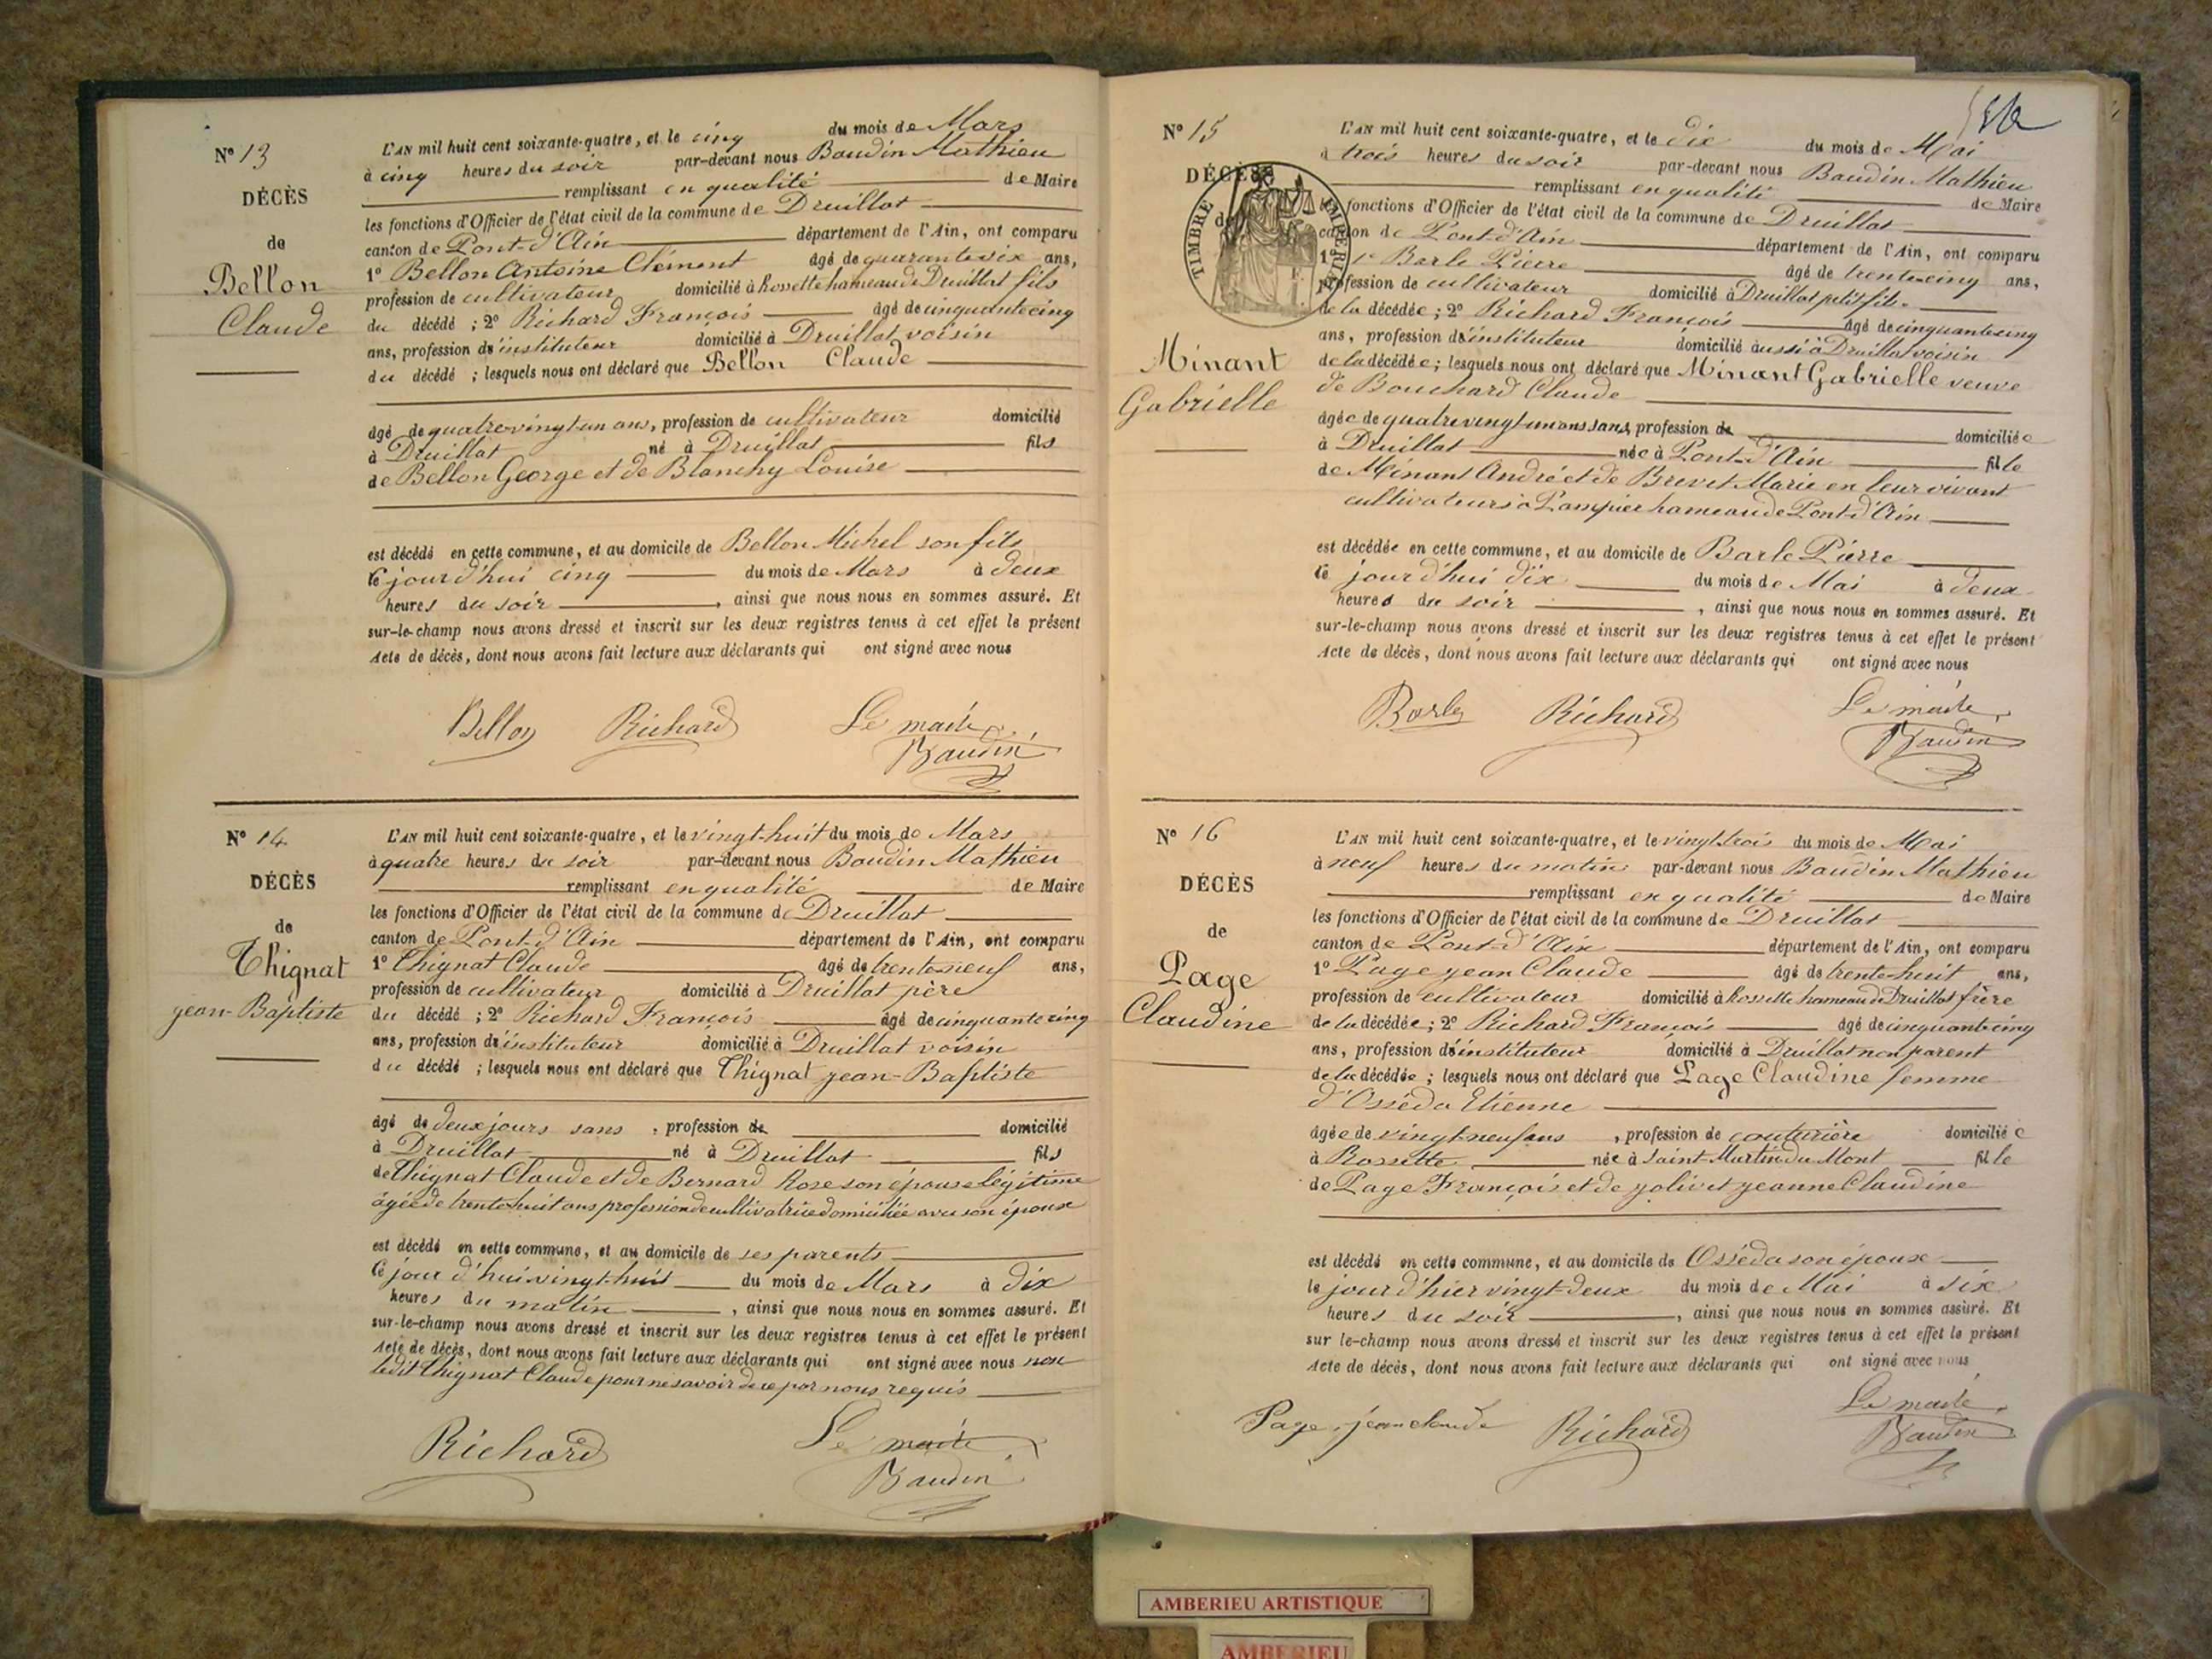 N° 13
DÉCÈS
de
Bellon
Claude
L'AN mil huit cent soixante-quatre, et le cinq du mois de Mars
à cinq heures du soir par-devant nous Baudin Mathieu
remplissant en qualité de Maire
les fonctions d'Officier de l'état civil de la commune de Druillat
canton de Pont-d'Ain département de l'Ain, ont comparu
1° Bellon Antoine Clément âgé de quarante six ans,
profession de cultivateur domicilié à Rossette hameau de Druillat fils
du décédé ; 2° Richard François âgé de cinquante cinq
ans, profession d'instituteur domicilié à Druillat voisin
du décédé ; lesquels nous ont déclaré que Bellon Claude
âgé de quatre-vingt-un ans, profession de cultivateur domicilié
à Druillat né à Druillat fils
de Bellon George et de Blanchy Louise
est décédé en cette commune, et au domicile de Bellon Michel son fils
le jourd'hui cinq du mois de Mars à deux
heures du soir , ainsi que nous nous en sommes assuré. Et
sur-le-champ nous avons dressé et inscrit sur les deux registres tenus à cet effet le présent
Acte de décès, dont nous avons fait lecture aux déclarants qui ont signé avec nous
Bellon Richard Le maire
Baudin
N° 14
DÉCÈS
de
Thignat
jean-Baptiste
L'AN mil huit cent soixante-quatre, et le vingt-huit du mois de Mars
à quatre heures du soir par-devant nous Baudin Mathieu
remplissant en qualité de Maire
les fonctions d'Officier de l'état civil de la commune de Druillat
canton de Pont-d'Ain département de l'Ain, ont comparu
1° Thignat Claude âgé de trente-neuf ans,
profession de cultivateur domicilié à Druillat père
du décédé ; 2° Richard François âgé de cinquante cinq
ans, profession d'instituteur domicilié à Druillat voisin
du décédé ; lesquels nous ont déclaré que Thignat jean-Baptiste
âgé de deux jours sans , profession de domicilié
à Druillat né à Druillat fils
de Thignat Claude et de Bernard Rose son épouse légitime
âgée de trente huit ans profession de cultivatrice domiciliée avec son époux
est décédé en cette commune, et au domicile de ses parents
le jour d'hui vingt-huit du mois de Mars à dix
heures du matin , ainsi que nous nous en sommes assuré. Et
sur-le-champ nous avons dressé et inscrit sur les deux registres tenus à cet effet le présent
Acte de décès, dont nous avons fait lecture aux déclarants qui ont signé avec nous non
ledit Thignat Claude pour ne savoir de ce par nous requis
Richard Le maire
Baudin
N° 15
DÉCÈS
de
TIMBRE IMPÉRIAL
Minant
Gabrielle
L'AN mil huit cent soixante-quatre, et le dix du mois de Mai
à trois heures du soir par-devant nous Baudin Mathieu
remplissant en qualité de Maire
les fonctions d'Officier de l'état civil de la commune de Druillat
canton de Pont-d'Ain département de l'Ain, ont comparu
1° Barle Pierre âgé de trente-cinq ans,
profession de cultivateur domicilié à Druillat petit fils
de la décédée ; 2° Richard François âgé de cinquante cinq
ans, profession d'instituteur domicilié aussi à Druillat voisin
de la décédée ; lesquels nous ont déclaré que Minant Gabrielle veuve
de Bouchard Claude
âgée de quatre vingt un ans sans, profession de domiciliée
à Druillat née à Pont-d'Ain fille
de Minant André et de Brevet Marie en leur vivant
cultivateurs à Dampier hameau de Pont-d'Ain
est décédée en cette commune, et au domicile de Barle Pierre
le jour d'hui dix du mois de Mai à deux
heures du soir , ainsi que nous nous en sommes assuré. Et
sur-le-champ nous avons dressé et inscrit sur les deux registres tenus à cet effet le présent
Acte de décès, dont nous avons fait lecture aux déclarants qui ont signé avec nous
Barle Richard Le maire
Baudin
N° 16
DÉCÈS
de
Page
Claudine
L'AN mil huit cent soixante-quatre, et le vingt trois du mois de Mai
à neuf heures du matin par-devant nous Baudin Mathieu
remplissant en qualité de Maire
les fonctions d'Officier de l'état civil de la commune de Druillat
canton de Pont-d'Ain département de l'Ain, ont comparu
1° Page jean Claude âgé de trente-huit ans,
profession de cultivateur domicilié à Rossette hameau de Druillat frère
de la décédée ; 2° Richard François âgé de cinquante cinq
ans, profession d'instituteur domicilié à Druillat non parent
de la décédée ; lesquels nous ont déclaré que Page Claudine femme
d'Osséda Etienne
âgée de vingt-neuf ans , profession de couturière domiciliée
à Rossette née à Saint-Martin du Mont fille
de Page François et de jolivet jeanne Claudine
est décédé en cette commune, et au domicile de Osséda son époux
le jour d'hier vingt-deux du mois de Mai à six
heures du soir , ainsi que nous nous en sommes assuré. Et
sur le-champ nous avons dressé et inscrit sur les deux registres tenus à cet effet le présent
Acte de décès, dont nous avons fait lecture aux déclarants qui ont signé avec nous
Page jean claude Richard Le maire
Baudin
AMBERIEU ARTISTIQUE
AMBERIEU